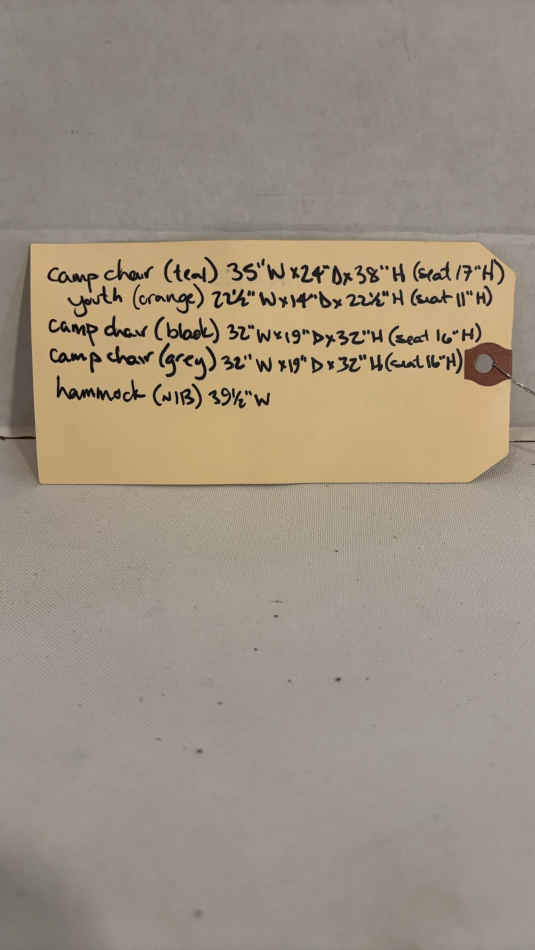 camp chair (teal) 35"W x 24"D x 38"H (seat 17"H)
youth (orange) 22½"W x 14"D x 22½"H (seat 11"H)
camp chair (black) 32"W x 19"D x 32"H (seat 16"H)
camp chair (grey) 32"W x 19"D x 32"H (seat 16"H)
hammock (NIB) 39½"W